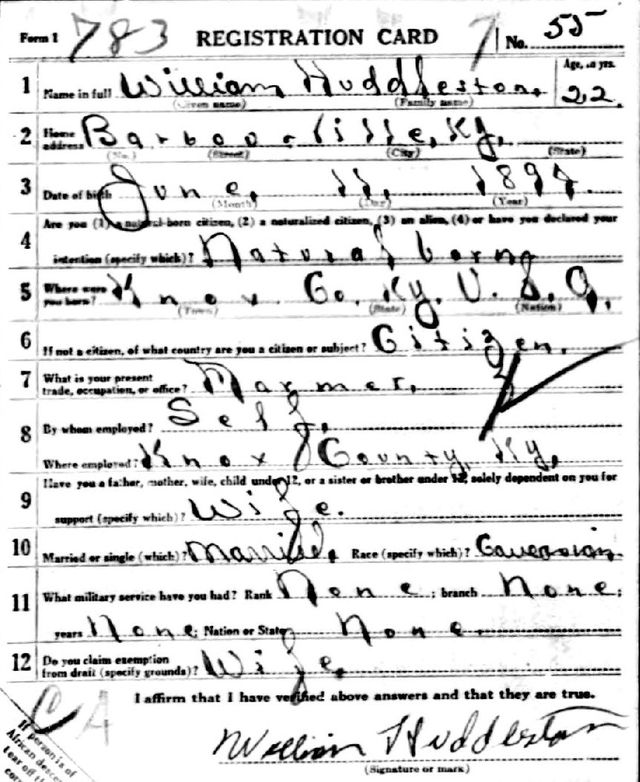 Form 1 783 REGISTRATION CARD No. 55
1 Name in full William Huddleston. Age, in yrs. 22
(Given name) (Family name)
2 Home address Barboorville, Ky.
(No.) (Street) (City) (State)
3 Date of birth June, 11, 1894.
(Month) (Day) (Year)
Are you (1) a natural-born citizen, (2) a naturalized citizen, (3) an alien, (4) or have you declared your
4 intention (specify which)? Natural born
5 Where were you born? Knox Co. Ky. U. S. A.
(Town) (State) (Nation)
6 If not a citizen, of what country are you a citizen or subject? Citizen.
7 What is your present trade, occupation, or office?
8 By whom employed? Self.
Where employed? Knox County, Ky.
Have you a father, mother, wife, child under 12, or a sister or brother under 12, solely dependent on you for
9 support (specify which)? Wife.
10 Married or single (which)? Married. Race (specify which)? Caucasian
11 What military service have you had? Rank None; branch None;
years None; Nation or State None.
12 Do you claim exemption from draft (specify grounds)? Wife.
I affirm that I have verified above answers and that they are true.
William Huddleston
(Signature or mark)
If person is of
African descent
tear off this